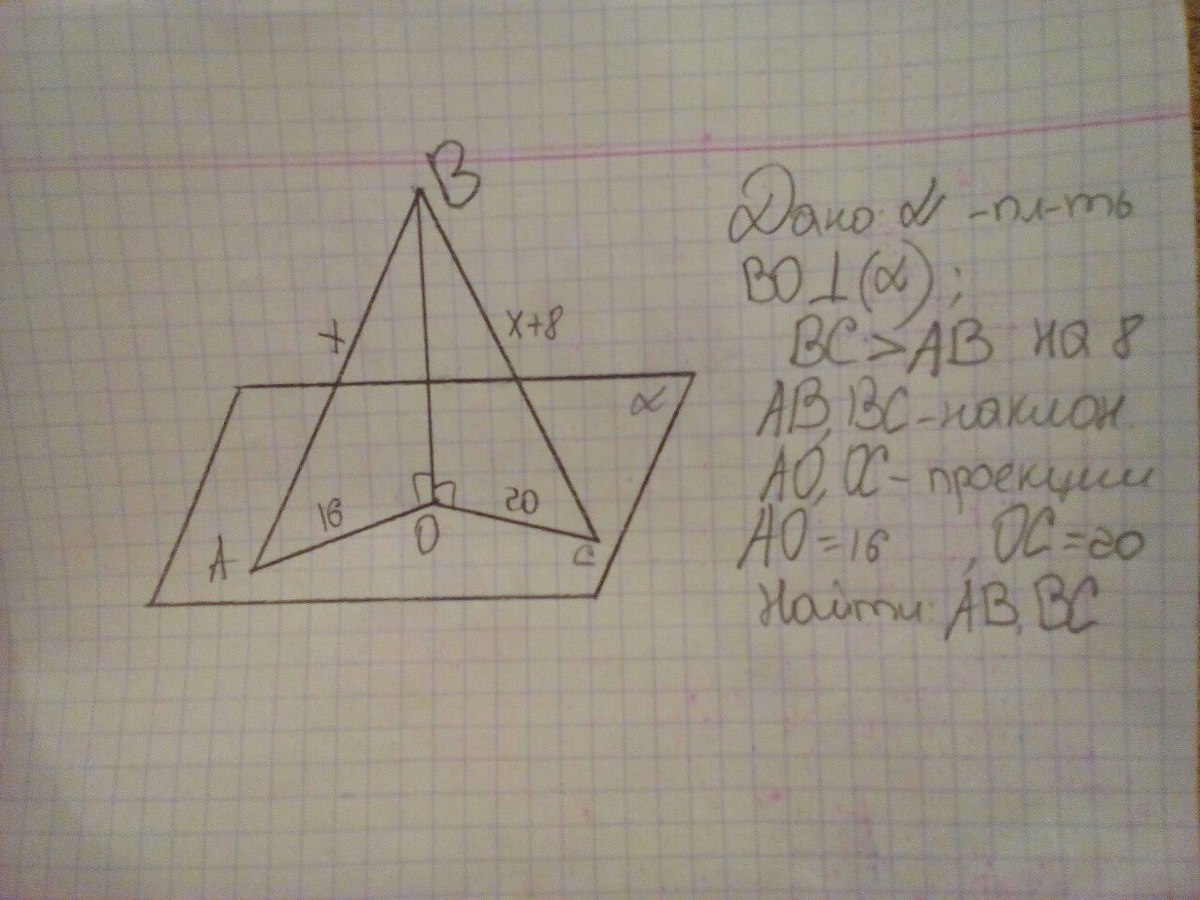 B
x
x+8
α
16
20
A
O
C
Дано: α -пл-ть
BO⊥(α);
BC>AB на 8
AB, BC-наклон.
AO, OC- проекции
AO=16, OC=20
Найти: AB, BC